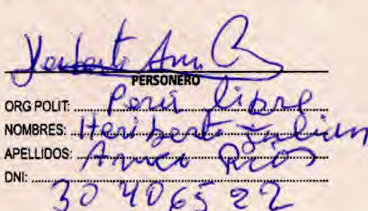 Heriberto Amu R
PERSONERO
ORG POLIT: Perú libre
NOMBRES: Heriberto Julian
APELLIDOS: Amu Ríos
DNI: 30406522